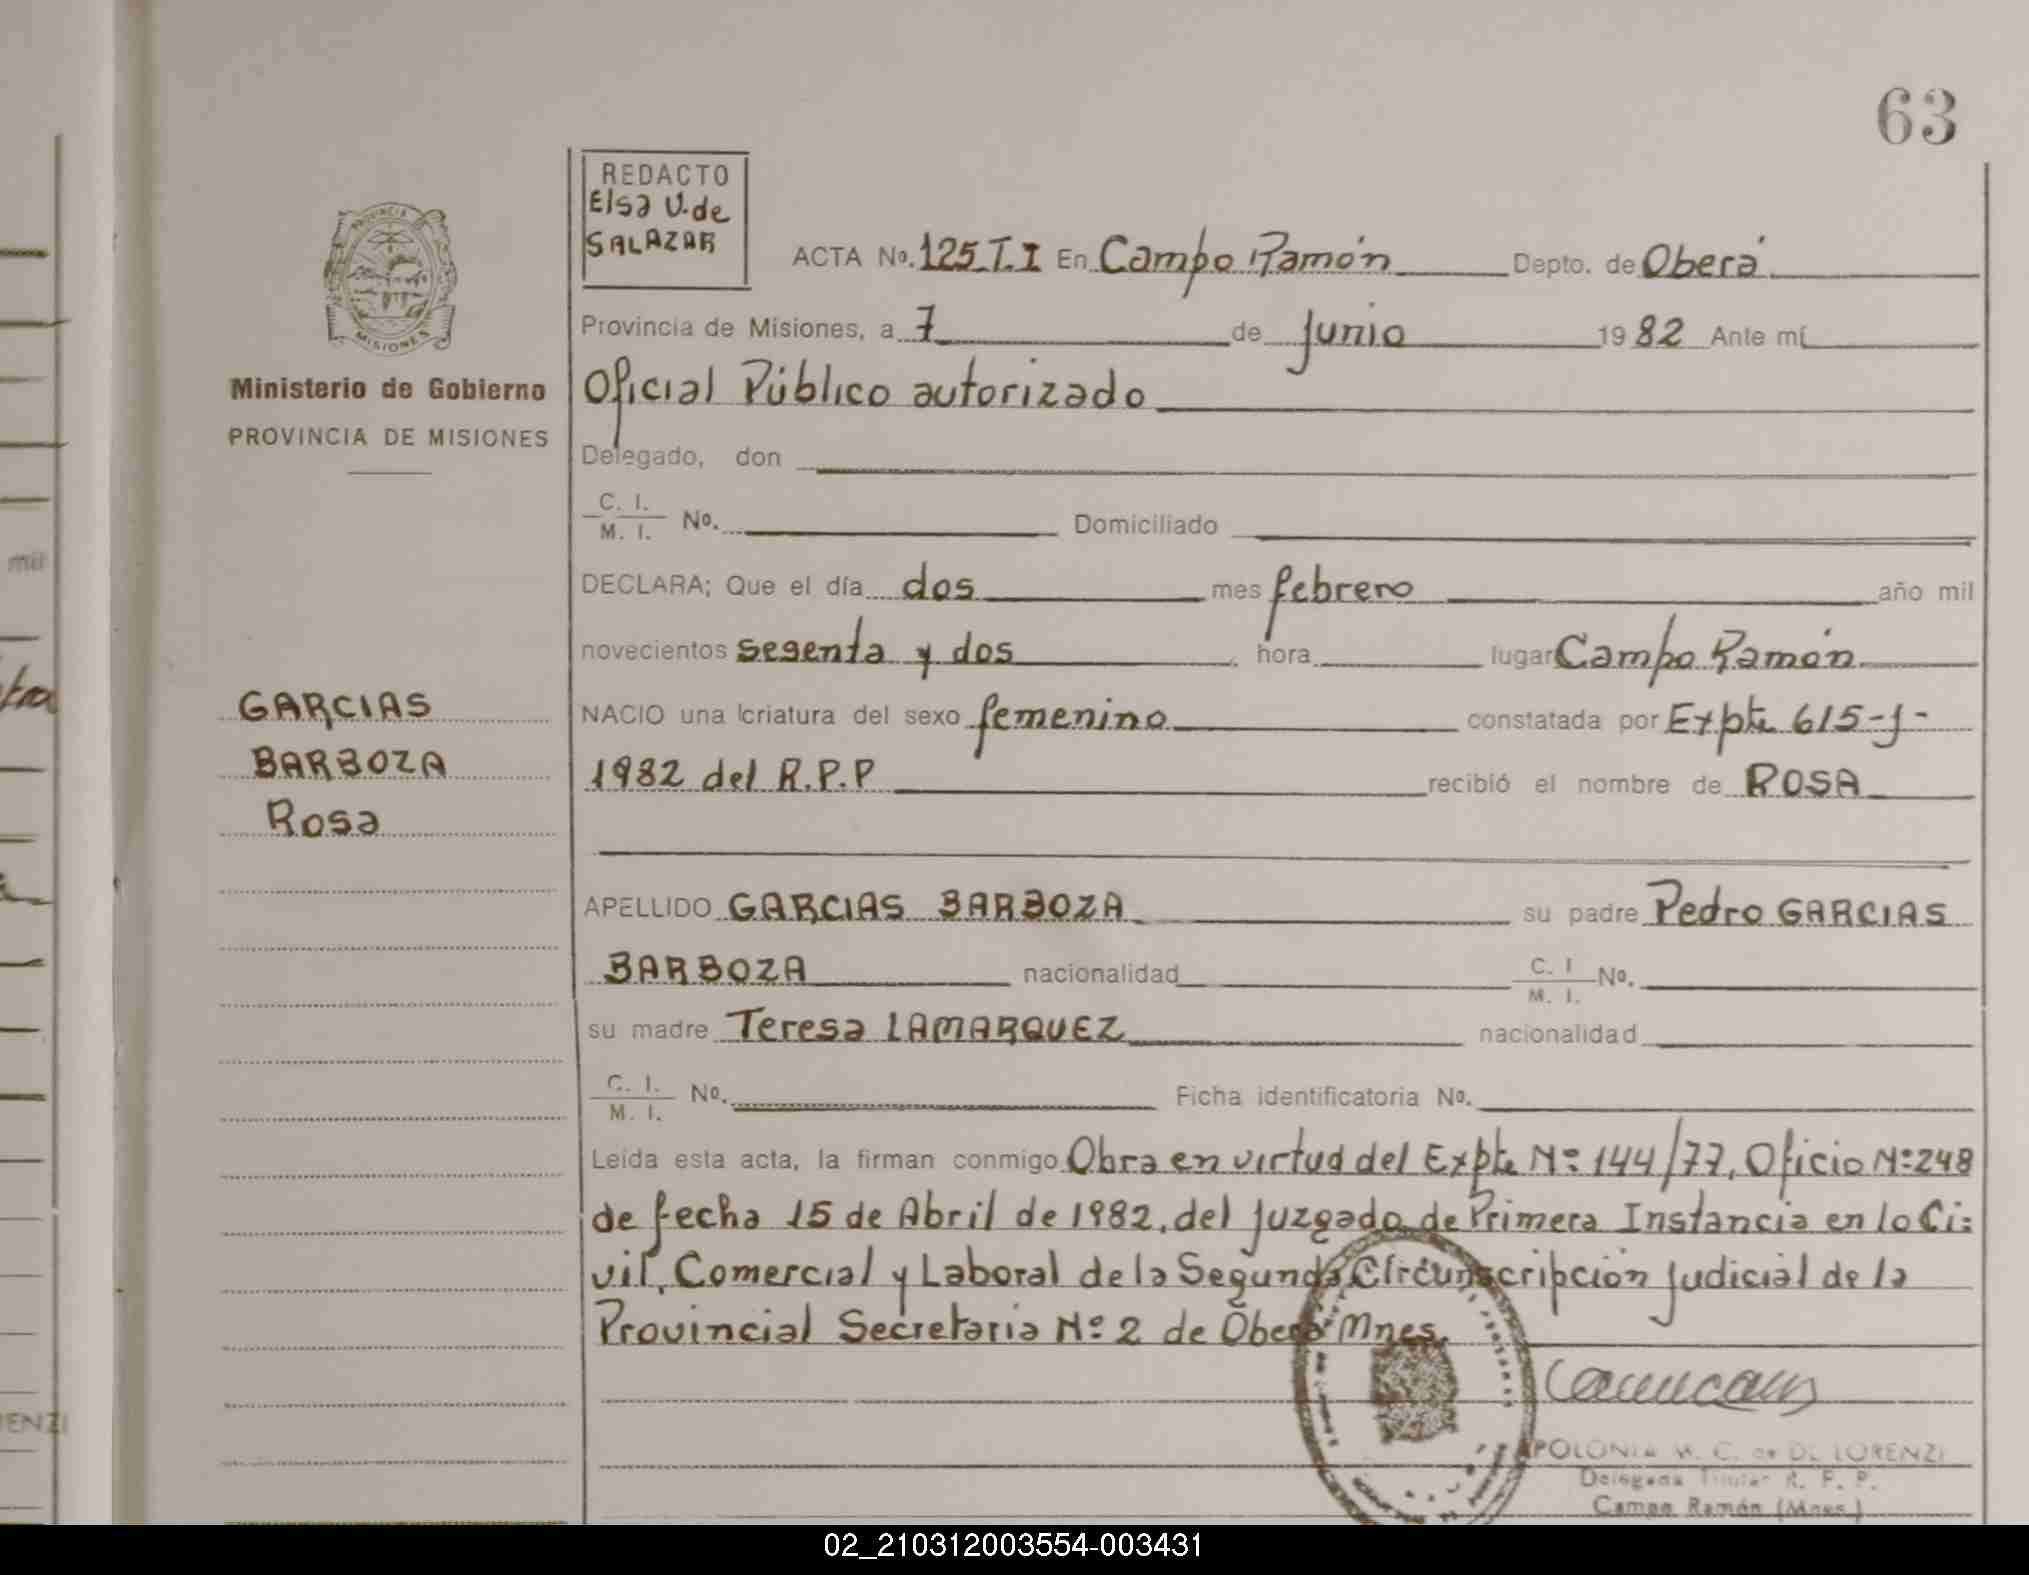 63
REDACTO
Elsa V. de
SALAZAR
ACTA Nº. 125 T. I En Campo Ramón Depto. de Oberá
PROVINCIA
MISIONES
Provincia de Misiones, a 7 de Junio 1982 Ante mí
Ministerio de Gobierno
PROVINCIA DE MISIONES
Oficial Público autorizado
Delegado, don
C. I.
M. I. Nº. Domiciliado
mil
DECLARA; Que el día dos mes febrero año mil
novecientos sesenta y dos hora lugar Campo Ramón
GARCIAS
BARBOZA
Rosa
NACIO una criatura del sexo femenino constatada por Expte 615-J-
1982 del R.P.P recibió el nombre de ROSA
APELLIDO GARCIAS BARBOZA su padre Pedro GARCIAS
BARBOZA nacionalidad C. I M. I. Nº.
su madre Teresa LAMARQUEZ nacionalidad
C. I.
M. I. Nº. Ficha identificatoria Nº.
Leída esta acta, la firman conmigo Obra en virtud del Expte Nº 144/77, Oficio Nº 248
de fecha 15 de Abril de 1982, del Juzgado de Primera Instancia en lo Ci=
vil, Comercial y Laboral de la Segunda Circunscripción Judicial de la
Provincial Secretaria Nº 2 de Oberá Mnes.
ENZI
POLONIA M. C. de DE LORENZI
Delegada Titular R. P. P.
Campo Ramón (Mnes.)
02_210312003554-003431